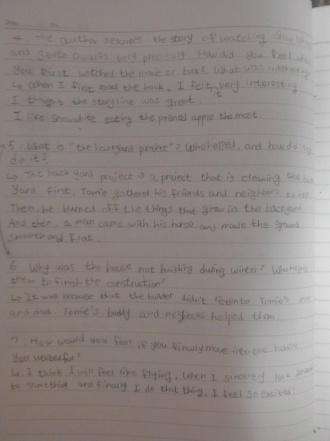 4. The author describes the story of watching Snow White
and Seven Dwarfs very precisely. How did you feel when
you first watched the movie or book? What was interesting
↳ When I first read the book, I felt it very interesting.
I thought the storyline was great.
I like Snowwhite eating the poisoned apple the most.
5. What is "the backyard project"? Who helped, and how did they
do it?
↳ The backyard project is a project that is cleaning the back
yard. First, Tomie gathered his friends and neighbors to
Then he burned off the things that grew in the backyard.
And then, a man came with his horse and made the ground
smooth and flat.
6. Why was the house not building during winter? Who helped
them to finish the construction?
↳ It was because that the builder didn't listen to Tomie's mom
and dad. Tomie's buddy and neighbors helped them.
7. How would you feel if you finally move into the house
you waited for?
↳ I think I will feel like flying. When I sincerely look forward
to something and finally I do that thing, I feel so excited!